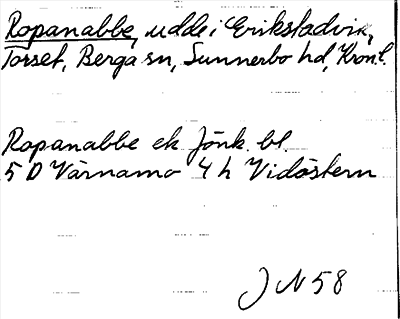 Ropanabbe, udde i Erikstadvik,
Torset, Berga sn, Sunnerbo hd, Kron.l.
Ropanabbe ek Jönk. bl.
5 D Värnamo 4 h Vidöstern
J N 58